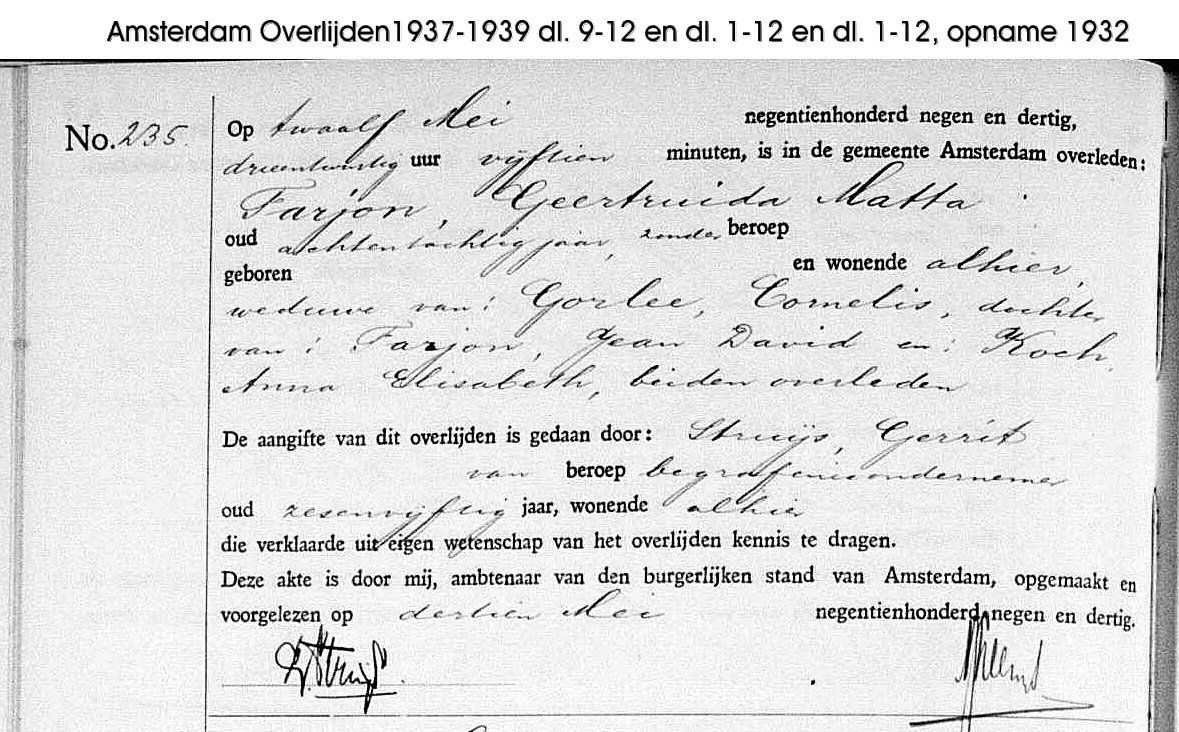 Amsterdam Overlijden1937-1939 dl. 9-12 en dl. 1-12 en dl. 1-12, opname 1932
No. 235.
Op twaalf Mei negentienhonderd negen en dertig,
drieentwintig uur vijftien minuten, is in de gemeente Amsterdam overleden:
Farjon, Geertruida Matta
oud achtentachtig jaar, zonder beroep
geboren en wonende alhier,
weduwe van: Gorlee, Cornelis, dochter
van: Farjon, Jean David en: Koch,
Anna Elisabeth, beiden overleden
De aangifte van dit overlijden is gedaan door: Struijs, Gerrit
van beroep begrafenisondernemer
oud zesenvijftig jaar, wonende alhier
die verklaarde uit eigen wetenschap van het overlijden kennis te dragen.
Deze akte is door mij, ambtenaar van den burgerlijken stand van Amsterdam, opgemaakt en
voorgelezen op dertien Mei negentienhonderd negen en dertig.
G. Struijs